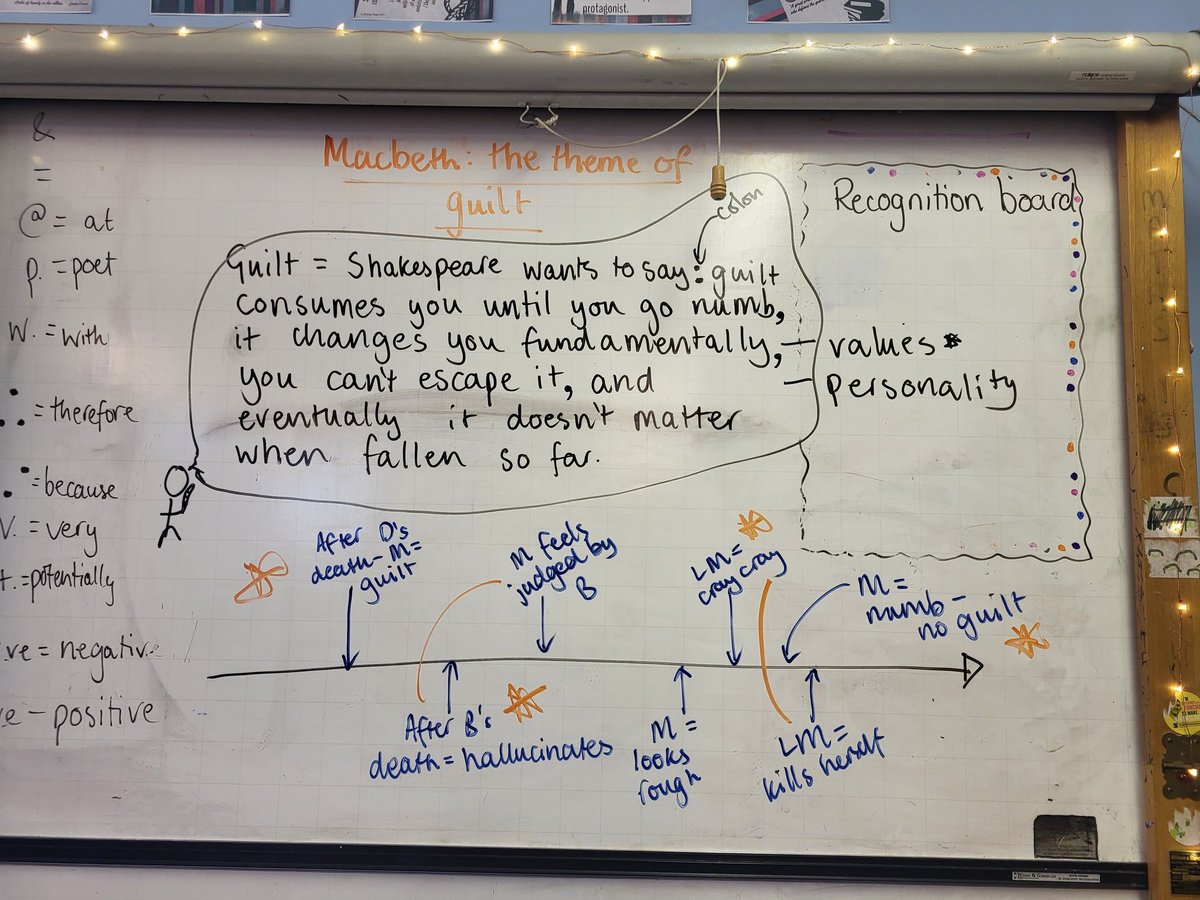 protagonist.
&
=
@ = at
p. = poet
w. = with
∴ = therefore
= because
V. = very
t. = potentially
ve = negative
e - positive
Macbeth: the theme of
guilt
colon
Guilt = Shakespeare wants to say: guilt
consumes you until you go numb,
it changes you fundamentally,
you can't escape it, and
eventually it doesn't matter
when fallen so far.
- values
- personality
Recognition board
After D's
death - M =
guilt
M feels
judged by
B
LM =
cray cray
M =
numb -
no guilt
After B's
death = hallucinates
M =
looks
rough
LM =
kills herself